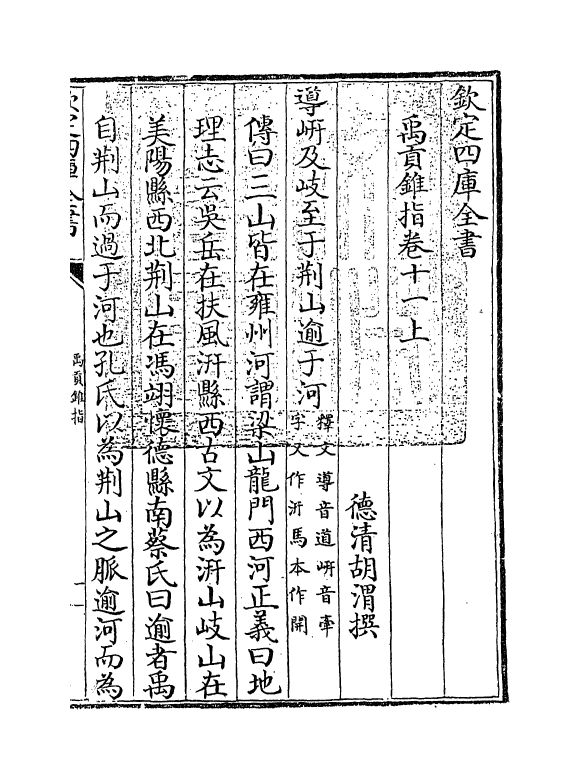 欽定四庫全書
禹貢錐指卷十一上
德清胡渭撰
導岍及岐至于荆山逾于河
釋文導音道岍音牽
字又作汧馬本作開
傳曰三山皆在雍州河謂梁山龍門西河正義曰地
理志云吳岳在扶風汧縣西古文以為汧山岐山在
美陽縣西北荆山在馮翊懷德縣南蔡氏曰逾者禹
自荆山而過于河也孔氏以為荆山之脈逾河而為
欽定四庫全書
禹貢錐指
一